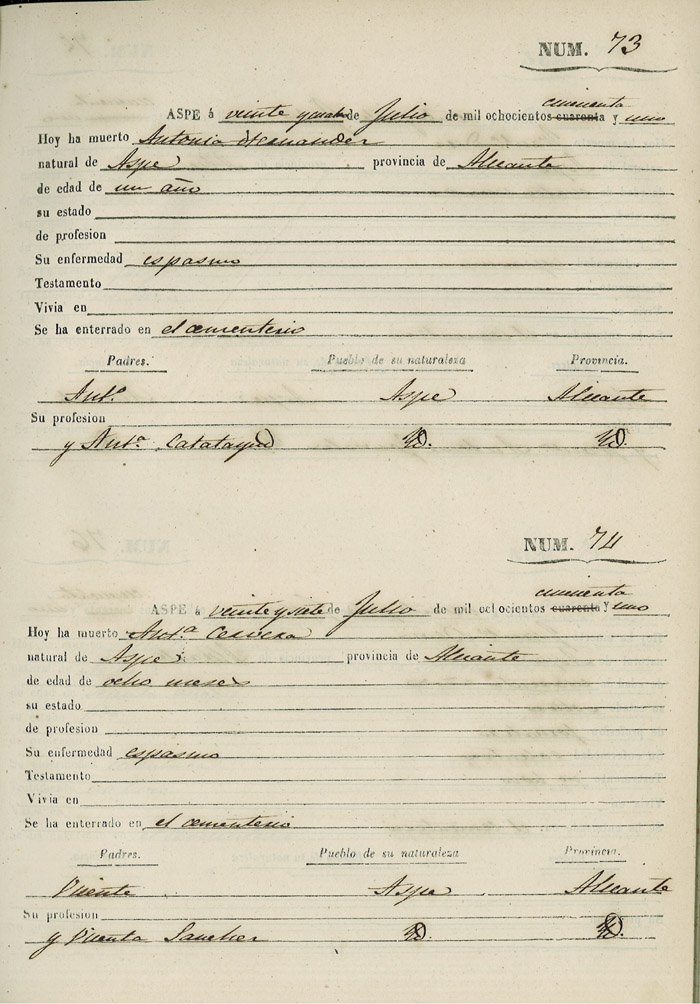 NUM. 73
cincuenta
ASPE á veinte y cuatro de Julio de mil ochocientos cuarenta y uno
Hoy ha muerto Antonia Hernander
natural de Aspe provincia de Alicante
de edad de un año
su estado
de profesion
Su enfermedad espasmo
Testamento
Vivia en
Se ha enterrado en el cementerio
Padres. Pueblo de su naturaleza Provincia.
Ant.º Aspe Alicante
Su profesion
y Ant.ª Catatayud YD. YD.
NUM. 74
cincuenta
ASPE á veinte y siete de Julio de mil ochocientos cuarenta y uno
Hoy ha muerto Ant.ª Cervera
natural de Aspe provincia de Alicante
de edad de ocho meses
su estado
de profesion
Su enfermedad espasmo
Testamento
Vivia en
Se ha enterrado en el cementerio
Padres. Pueblo de su naturaleza Provincia.
Vicente Aspe Alicante
Su profesion
y Vicenta Sanchez YD. YD.